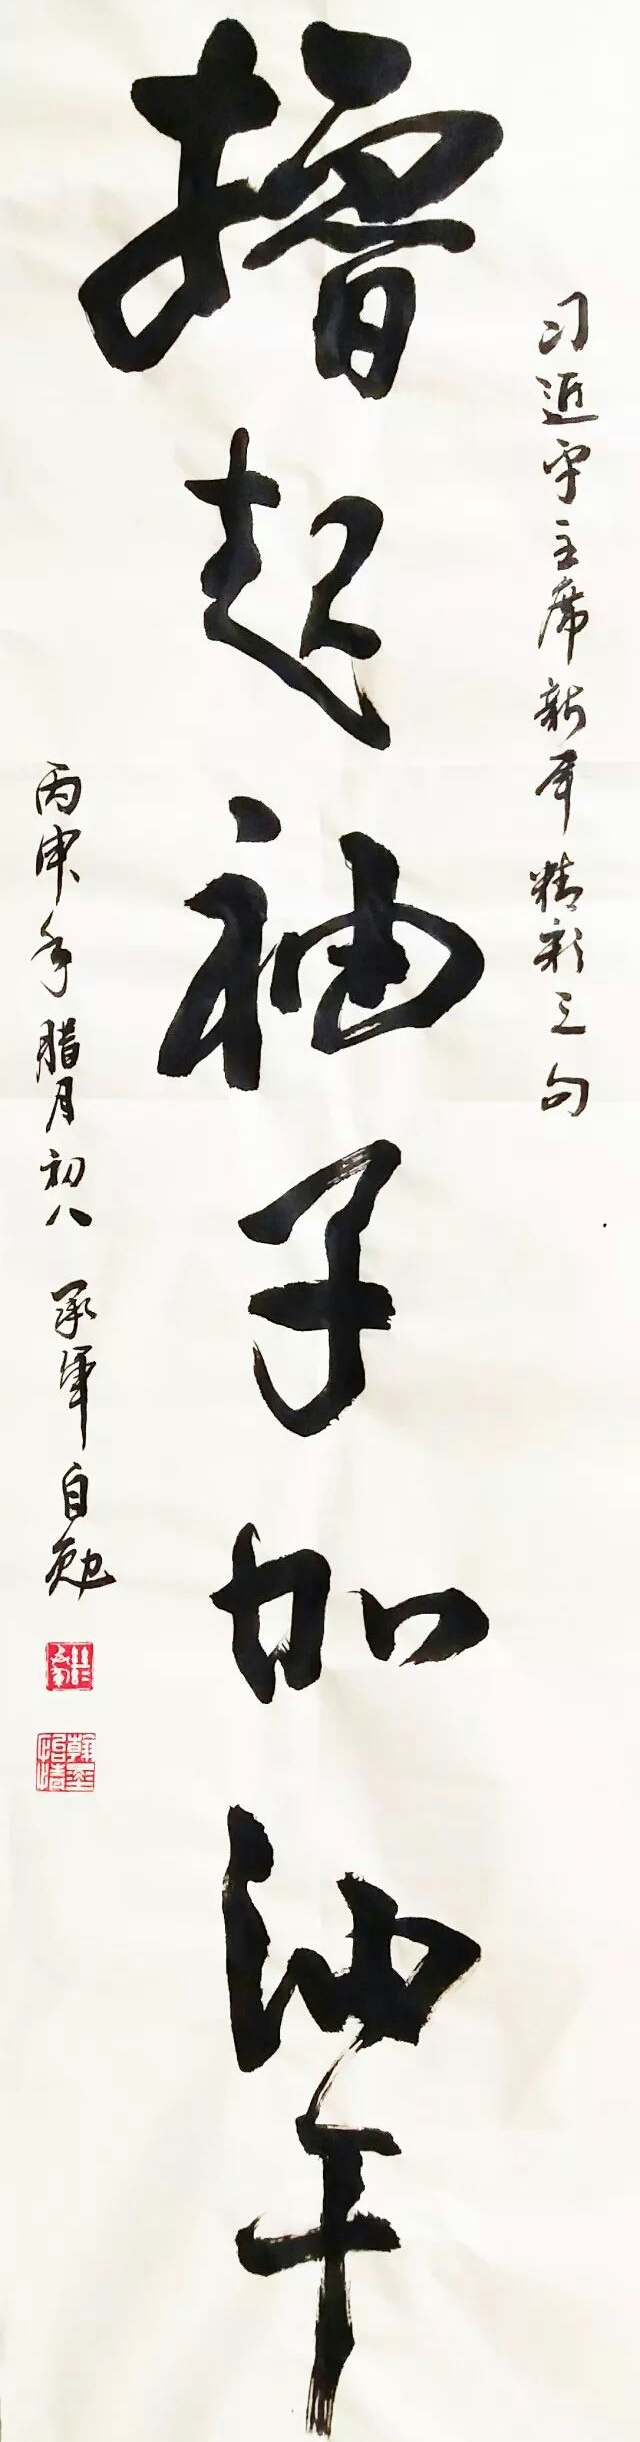 习近平主席新年精彩之句
撸起袖子加油干
丙申年腊月初八 承军自勉
翰墨怡情